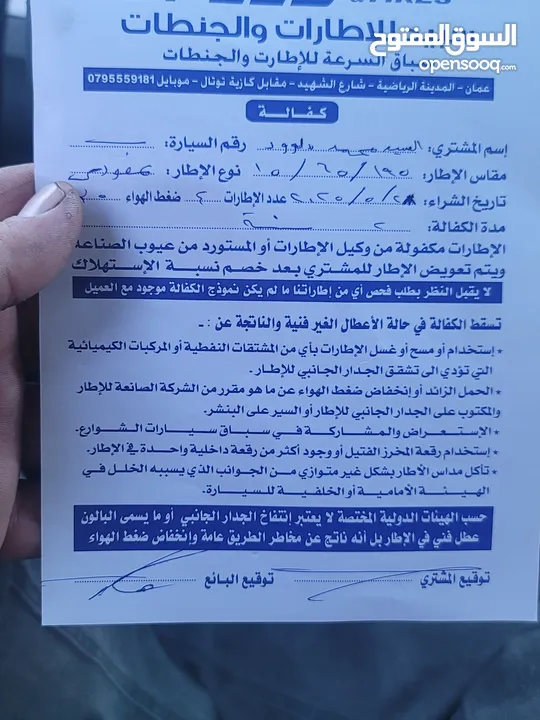 TIRES
للإطارات والجنطات
السوق المفتوح
opensooq.com
سباق السرعة للإطارت والجنطات
عمان - المدينة الرياضية - شارع الشهيد - مقابل كازية توتال - موبايل 0795559181
كفالة
إسم المشتري: السيد محمد داوود رقم السيارة:
مقاس الإطار: ١٩٥/٦٥/١٥ نوع الإطار:
تاريخ الشراء: عدد الإطارات ٤ ضغط الهواء ٣٥
مدة الكفالة: ٢ سنة
الإطارات مكفولة من وكيل الإطارات أو المستورد من عيوب الصناعة
ويتم تعويض الإطار للمشتري بعد خصم نسبة الإستهلاك
لا يقبل النظر بطلب فحص أي من إطاراتنا ما لم يكن نموذج الكفالة موجود مع العميل
تسقط الكفالة في حالة الأعطال الغير فنية والناتجة عن : ـ
* إستخدام أو مسح أو غسل الإطارات بأي من المشتقات النفطية أو المركبات الكيميائية
التي تؤدي الى تشقق الجدار الجانبي للإطار.
* الحمل الزائد أو إنخفاض ضغط الهواء عن ما هو مقرر من الشركة الصانعة للإطار
والمكتوب على الجدار الجانبي للإطار أو السير على البنشر.
* الإستعراض والمشاركة في سباق سيارات الشوارع.
* إستخدام رقعة المخرز الفتيل أو وجود أكثر من رقعة داخلية واحدة في الإطار.
* تآكل مداس الأطار بشكل غير متوازي من الجوانب الذي يسببه الخلل في
الهيئة الأمامية أو الخلفية للسيارة.
حسب الهيئات الدولية المختصة لا يعتبر إنتفاخ الجدار الجانبي أو ما يسمى البالون
عطل فني في الإطار بل أنه ناتج عن مخاطر الطريق عامة وانخفاض ضغط الهواء
توقيع المشتري توقيع البائع